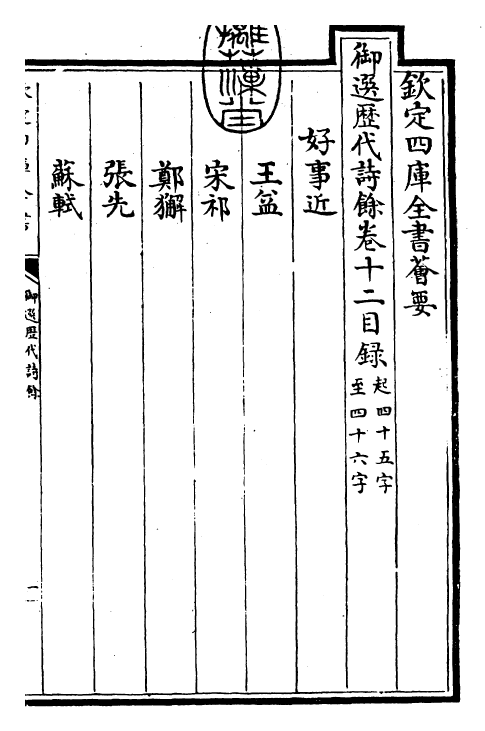 欽定四庫全書薈要
御選歴代詩餘卷十二目録起四十五字
至四十六字
好事近
王益
宋祁
鄭獬
張先
蘇軾
御選歴代詩餘
一